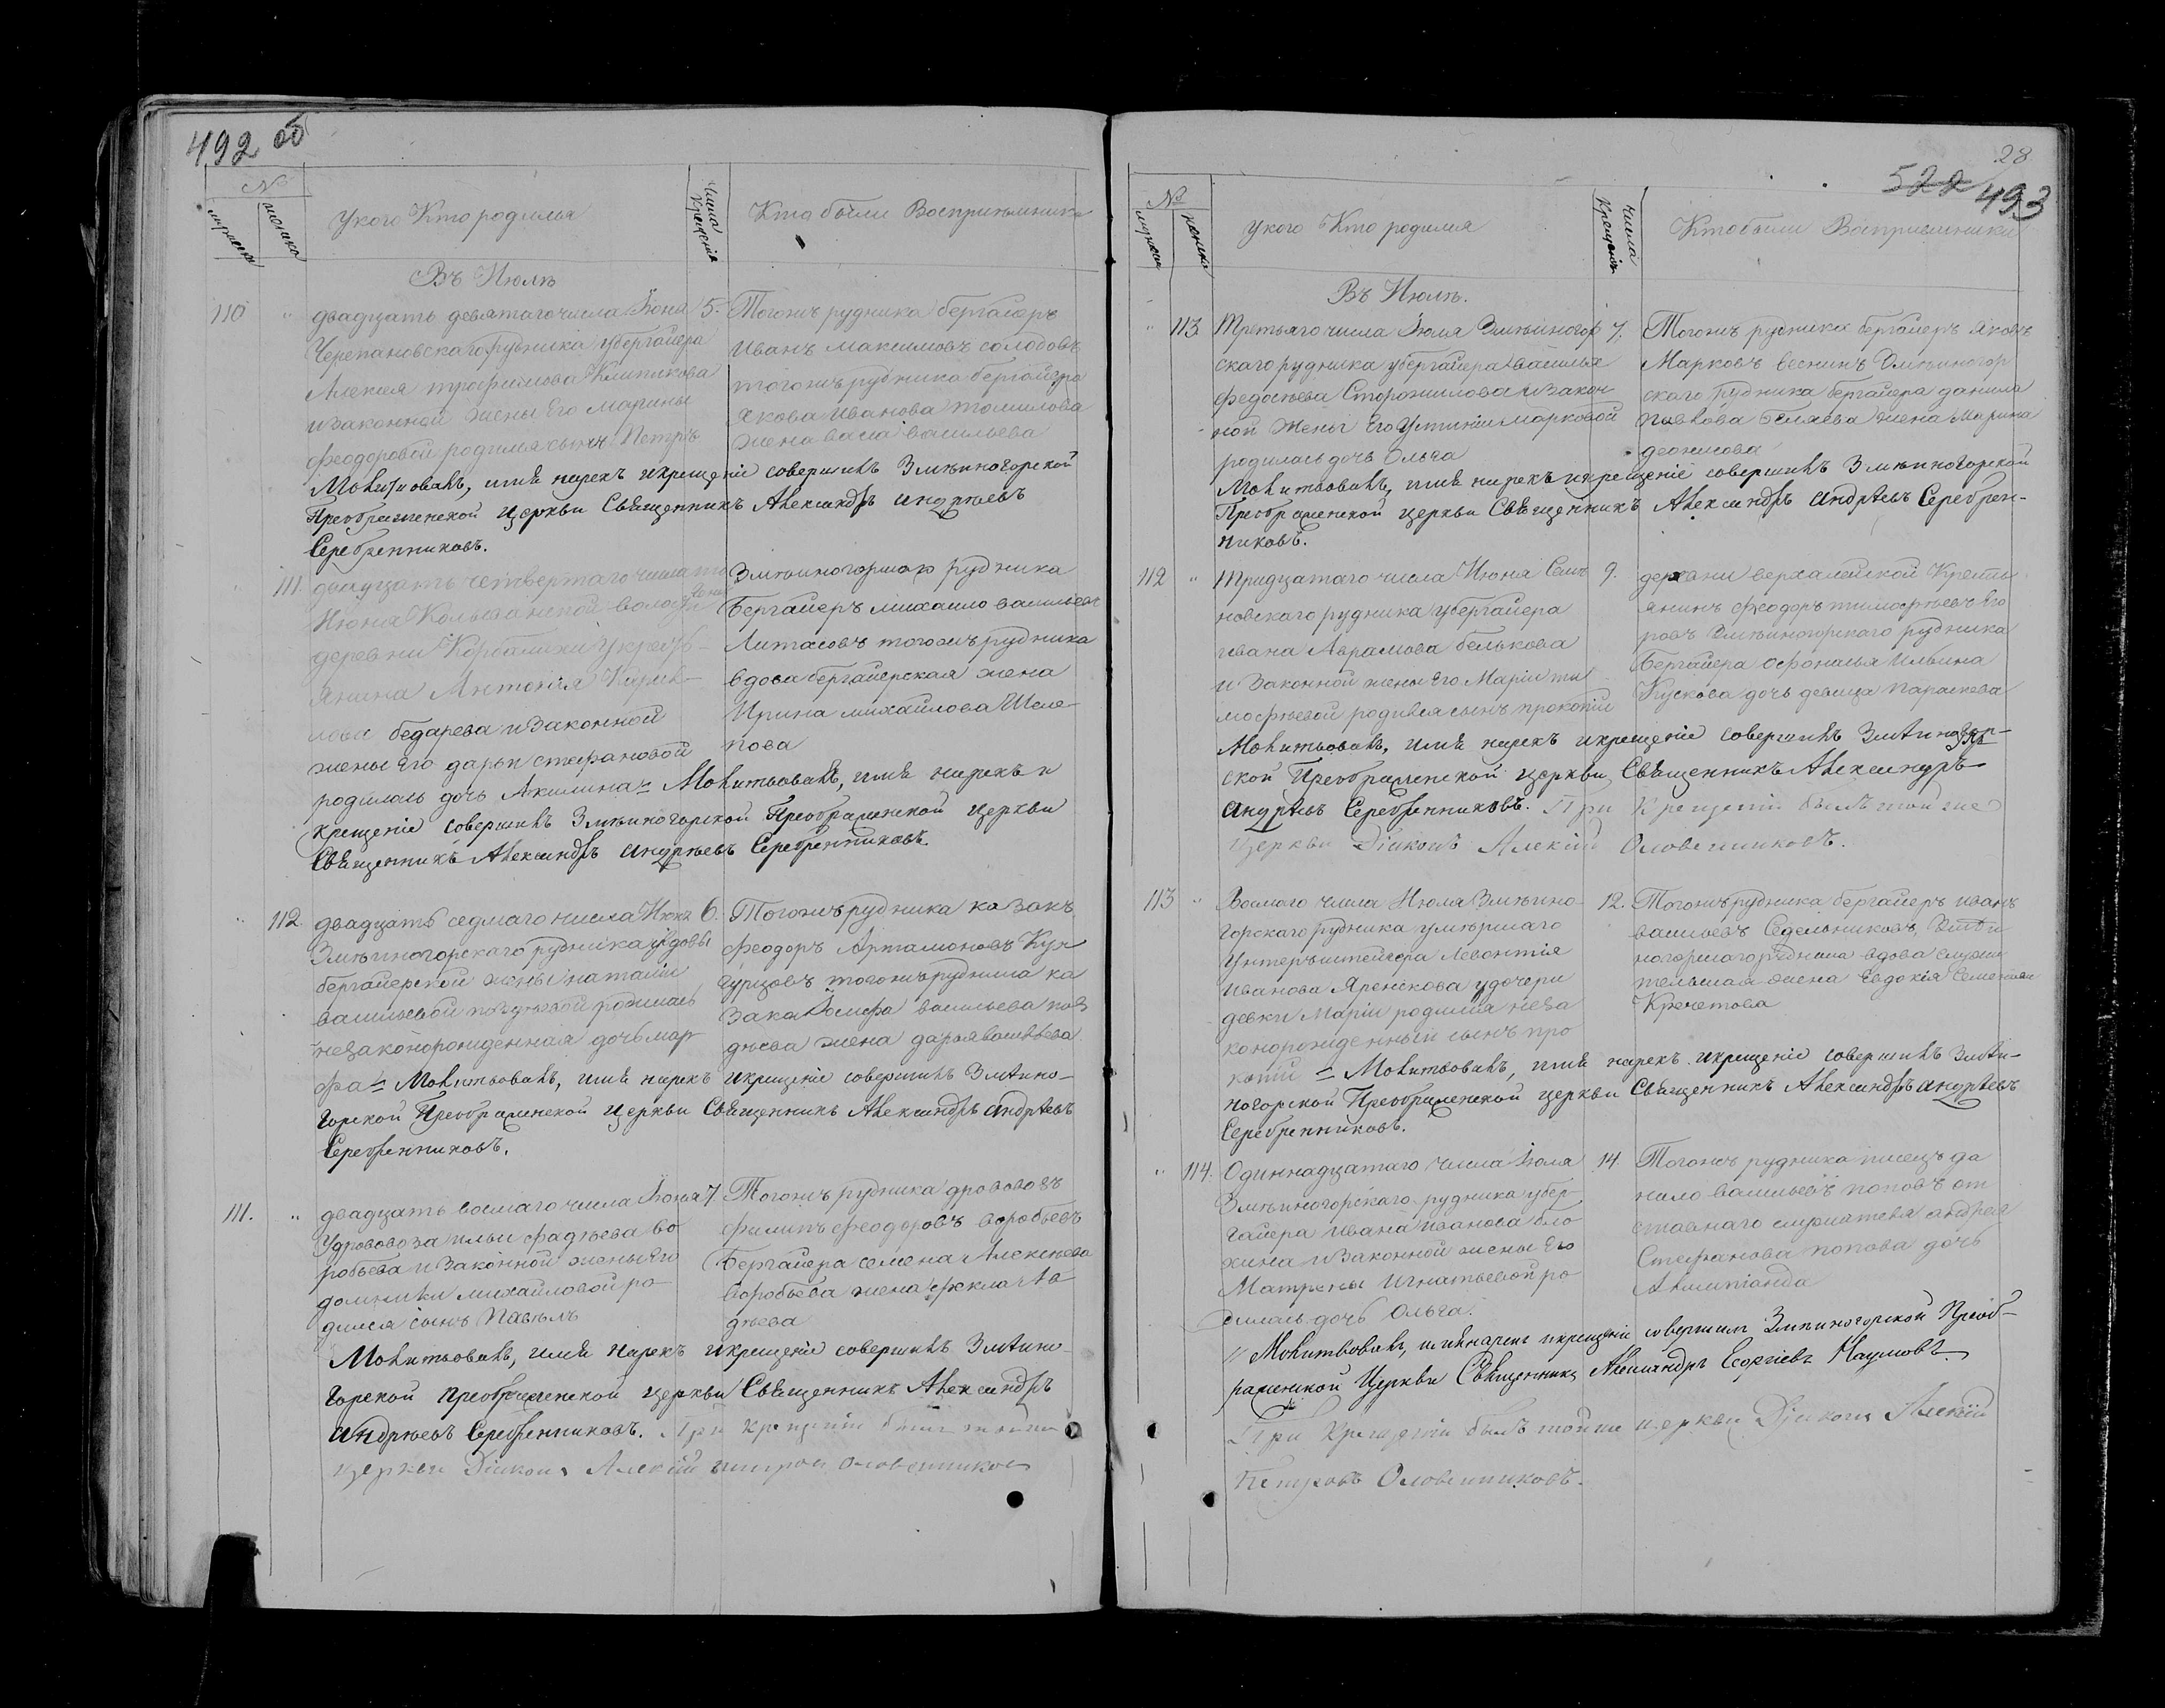 492 об
№
мужеска
женска
У кого Кто родился
числа Крещенія
Кто были Воспріемники
Въ Июлѣ
110 " двадцать девятаго числа Іюня 5.
Черепановскаго рудника убергайера
Алексея трофимова
и законной жены Его Марины
феодоровой родился сынъ Петръ
Тогожъ рудника бергаеръ
Иванъ Максимовъ солодовъ
тогожъ рудника бергайера
Якова Иванова томилова
жена васа васильева
Молитвовалъ, имя нарекъ и крещеніе совершилъ Змѣиногорской
Преображенской церкви Священникъ Александръ Андрѣевъ
Серебренниковъ.
" 111. двадцать четвертаго числа
Июня Колыванской волости
деревни Корбалихи у крестъ-
янина Антонія
бедарева и законной
жены Его дарьи стефановой
родилась дочь Акилина
Змѣиногорскаго рудника
Бергайеръ михаило васильевъ
Литасовъ тогожъ рудника
вдова бергайерская жена
Ирина михайлова Шеле-
пова
Молитвовалъ, имя нарекъ и
крещеніе совершилъ Змѣиногорской Преображенской церкви
Священникъ Александръ Андрѣевъ Серебренниковъ.
" 112. двадцать седмаго числа Июня 6.
Змѣиногорскаго рудника у вдовы
бергайерской жены наталіи
васильевой родилась
незаконорожденная дочь мар
фа
Тогожъ рудника казакъ
феодоръ Артамоновъ Кун
гурцовъ тогожъ рудника ка
зака васильева поз
днѣева жена дарья
Молитвовалъ, имя нарекъ и крещеніе совершилъ Змѣино-
горской Преображенской церкви Священникъ Александръ Андрѣевъ
Серебренниковъ.
111. " двадцать восмаго числа Іюня 7.
У дрововоза ильи фадѣева во
робьева и законной жены Его
домники михайловой ро-
дился сынъ Павелъ
Тогожъ рудника дрововозъ
филипъ феодоровъ воробьевъ
Бергайера семена Алексѣева
воробьева жена фекла Ав
дѣева
Молитвовалъ, имя нарекъ и крещеніе совершилъ Змѣино-
горской Преображенской церкви Священникъ Александръ
Андрѣевъ Серебренниковъ. При крещеніи былъ тойже
церкви Діаконъ Алексій Петровъ Оловенниковъ
28
522 493
№
мужеска
женска
У кого Кто родился
Числа Крещенія
Кто были Воспріемники
Въ Июлѣ.
" 113 Третьяго числа Іюля Змѣиногор 7.
скаго рудника убергайера Василья
федосѣева Сторожилова и закон
ной жены Его Устиніи марковой
родилась дочь Ольга
Тогожъ рудника бергаеръ яковъ
Марковъ веснинъ Змѣиногор
скаго рудника бергайера данила
Павлова Беляева жена Марина
деонисова
Молитвовалъ, имя нарекъ и крещеніе совершилъ Змѣиногорской
Преображенской церкви Священникъ Александръ Андрѣевъ Серебрен-
никовъ.
112 " Тридцатаго числа Июня Семе 9.
новскаго рудника убергайера
ивана Аврамова белькова
и законной жены Его Маріи ти
мофѣевой родился сынъ прокопій
деревни верхалейской Крести
янинъ феодоръ тимофѣевъ Его
ровъ Змѣиногорскаго рудника
Бергайера Офонасья Ильина
Кускова дочь девица параскева
Молитвовалъ, имя нарекъ и крещеніе совершилъ Змѣиногор-
ской Преображенской церкви Священникъ Александръ
Андрѣевъ Серебренниковъ. При Крещеніи былъ той же
Церкви Діаконъ Алексій Оловенниковъ.
113 " Восмаго числа Июля Змѣино- 12.
горскаго рудника умершаго
Унтеръштейгера Левонтія
Иванова Яренскова у дочери
девки Маріи родился неза
конорожденный сынъ про
копій
Тогожъ рудника бергайеръ иванъ
васильевъ Седельниковъ, Змѣи
ногорскаго рудника вдова служи
тельская жена Евдокія Семенова
Кречетова
Молитвовалъ, имя нарекъ и крещеніе совершилъ Змѣи-
ногорской Преображенской церкви Священникъ Александръ Андрѣевъ
Серебренниковъ.
" 114. Одиннадцатаго числа Іюля 14.
Змѣиногорскаго рудника убер-
гайера ивана иванова бло
хина и законной жены Его
Матрены Игнатьевой ро
дилась дочь Ольга.
Тогожъ рудника писецъ да
нило васильевъ поповъ от
ставнаго служителя андрея
Стефанова попова дочь
Молитвовалъ, имя нарекъ и крещеніе совершилъ Змѣиногорской Преоб-
раженской Церкви Священникъ Александръ Георгіевъ Наумовъ
При Крещеніи былъ тойже церкви Діаконъ Алексій
Петровъ Оловенниковъ.